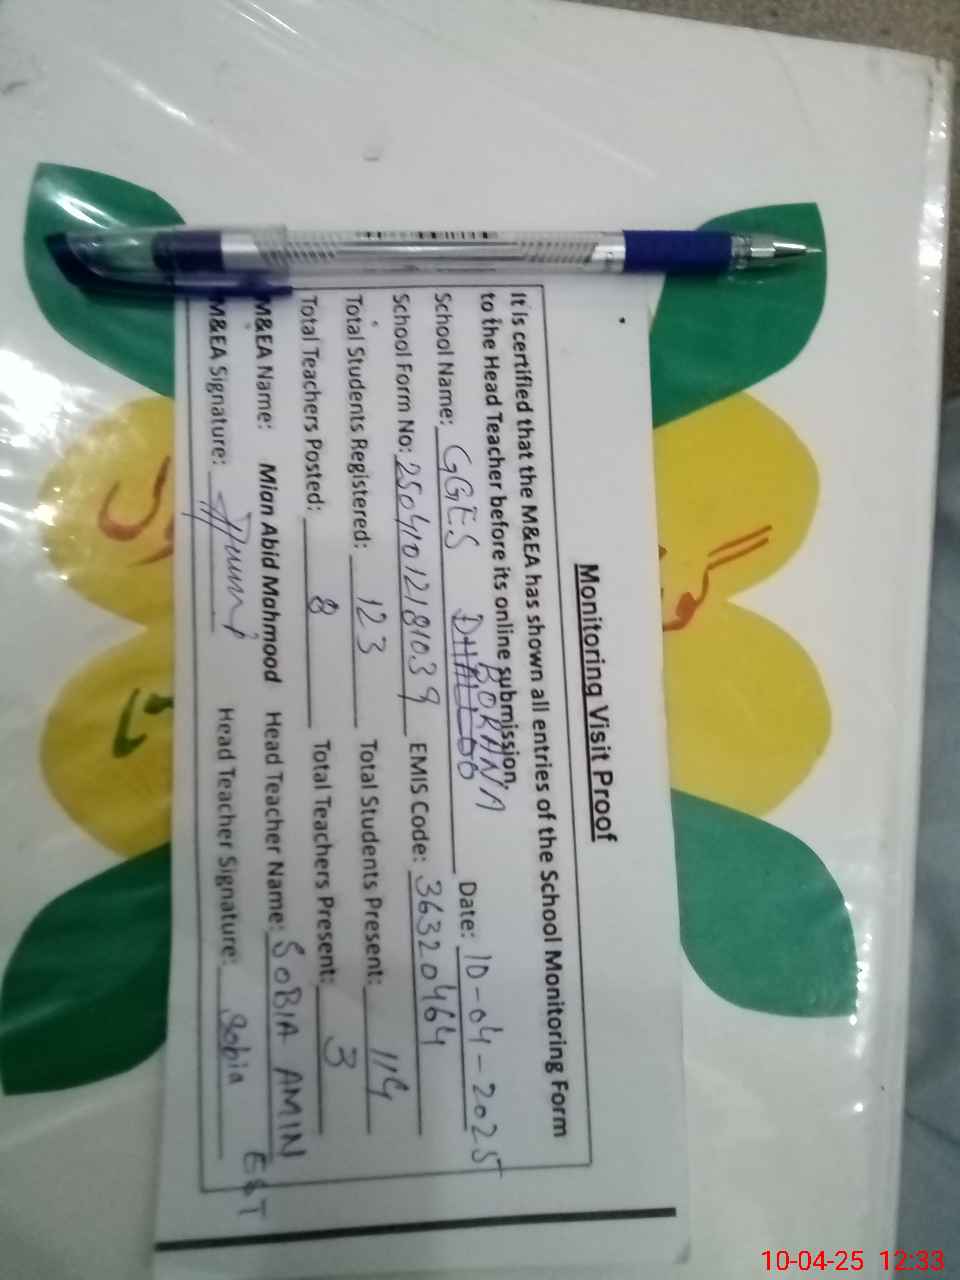 Monitoring Visit Proof
It is certified that the M&EA has shown all entries of the School Monitoring Form
to the Head Teacher before its online submission.
School Name: GGES BORANA Date: 10-04-2025
School Form No: 2504101218103 9 EMIS Code: 36320464
Total Students Registered: 123 Total Students Present: 119
Total Teachers Posted: 8 Total Teachers Present: 3
M&EA Name: Mian Abid Mahmood Head Teacher Name: SOBIA AMIN EST
M&EA Signature: Head Teacher Signature: Sobia
10-04-25 12:33